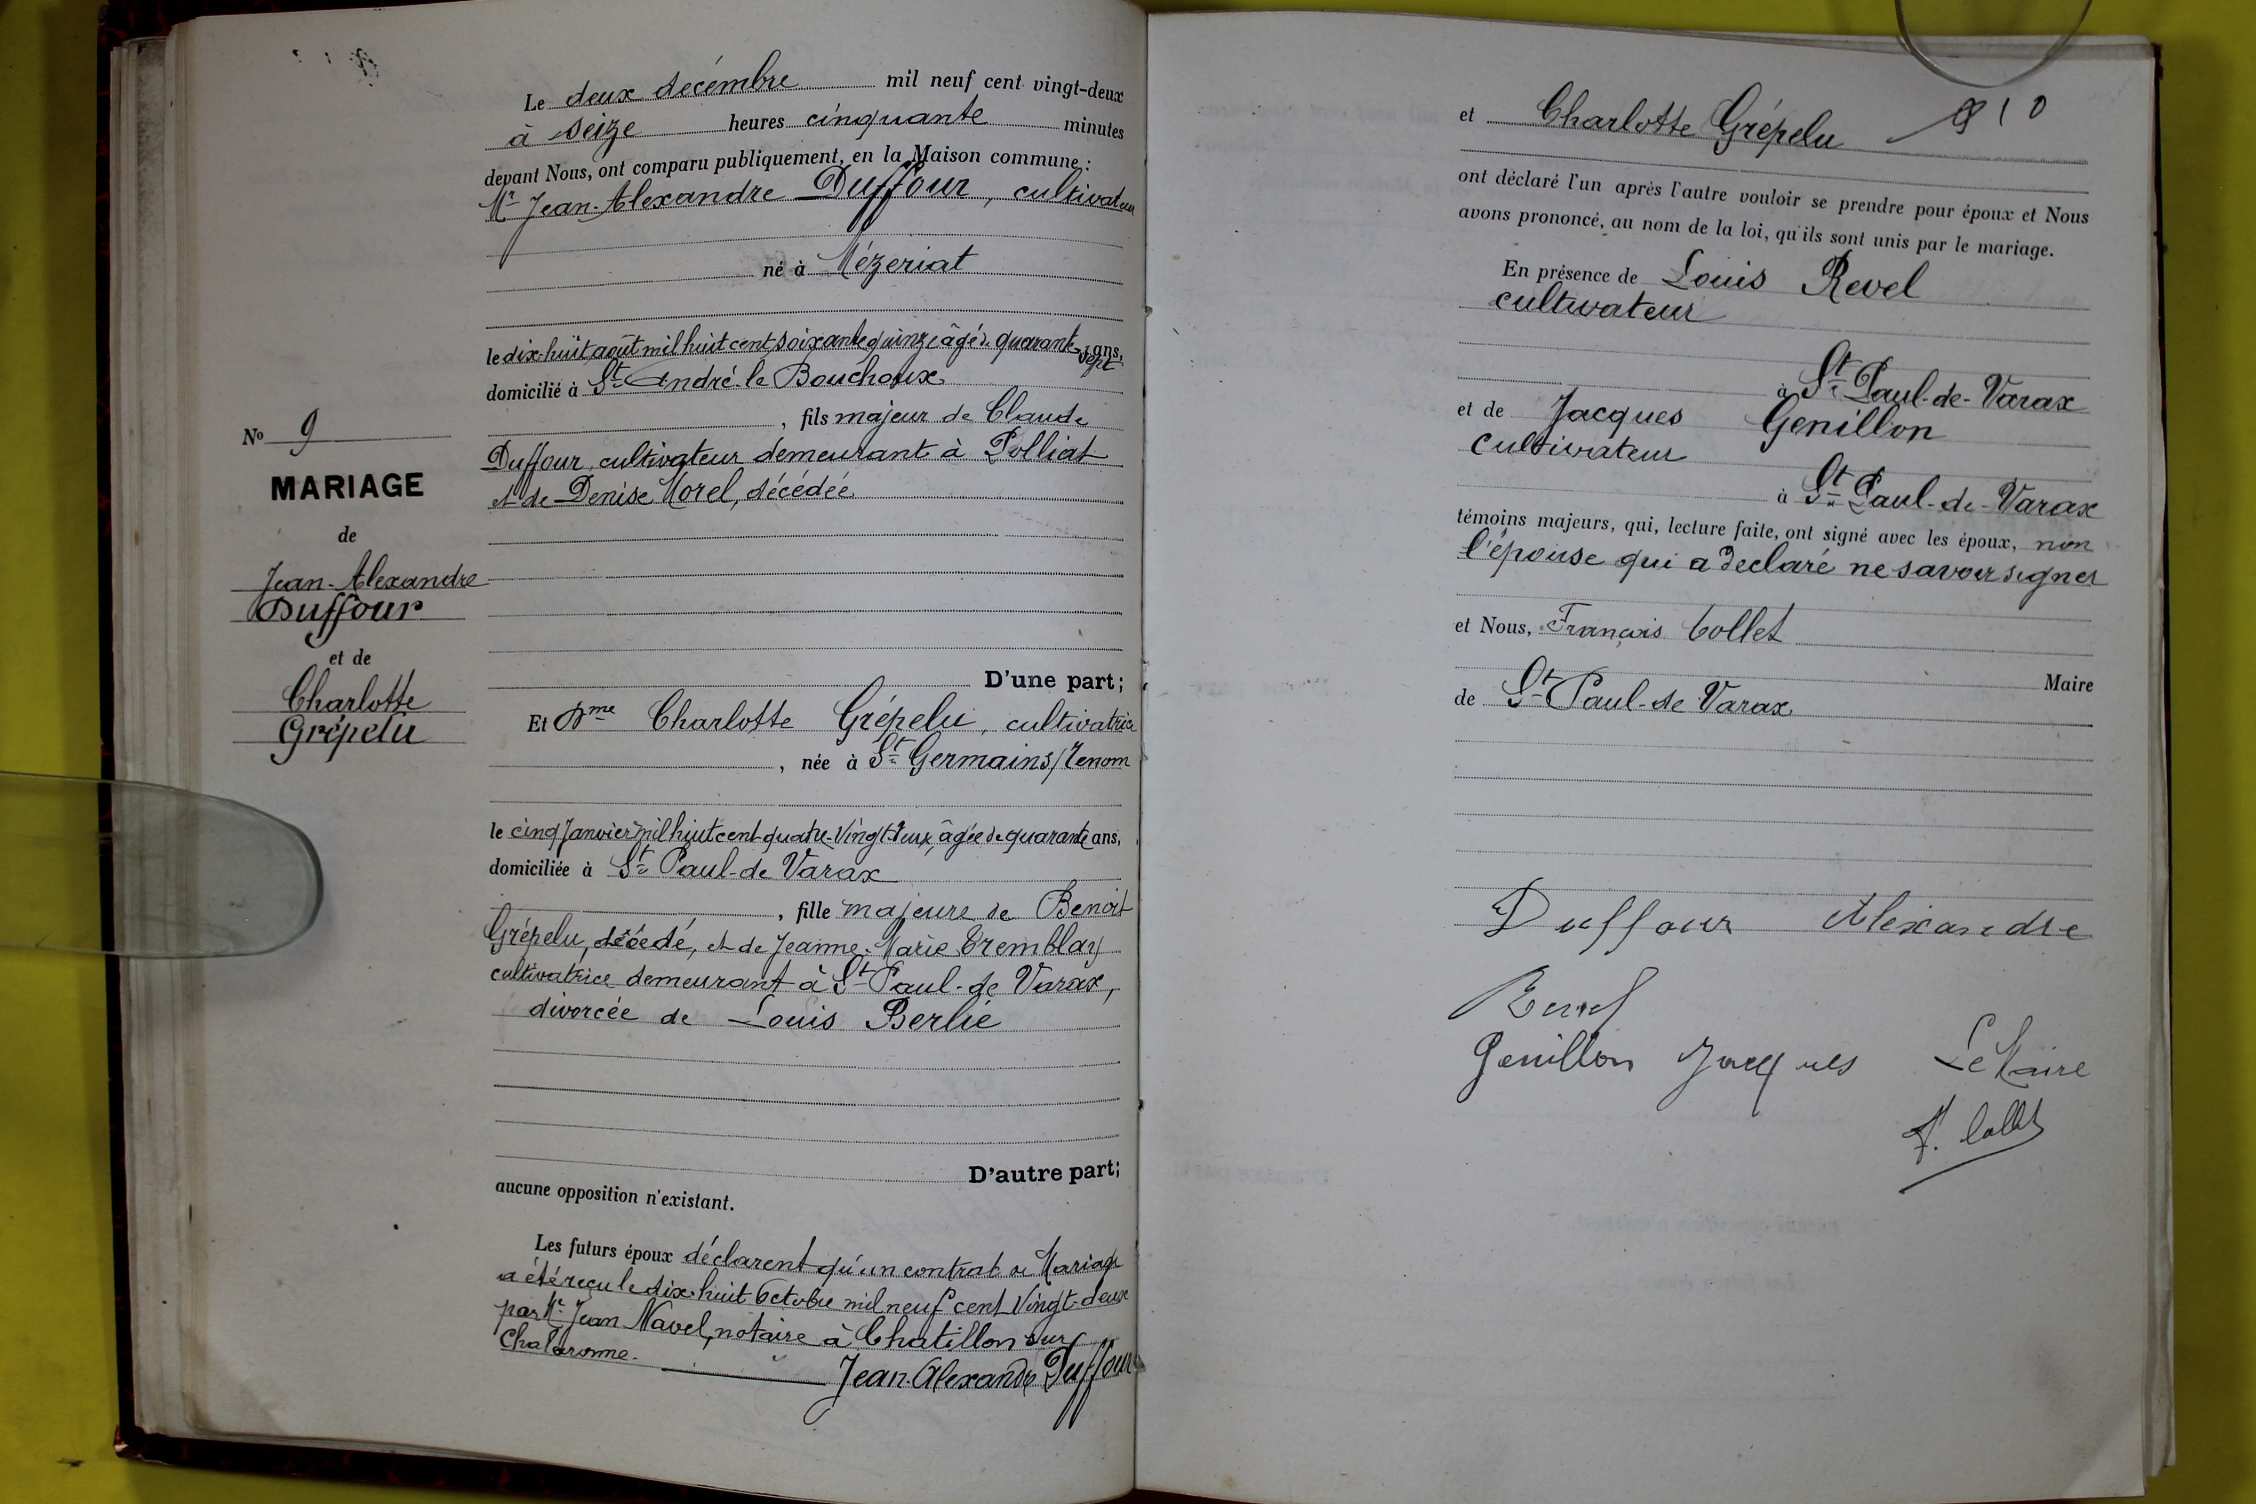 Le deux décembre mil neuf cent vingt-deux
à seize heures cinquante minutes
devant Nous, ont comparu publiquement, en la Maison commune :
Mr Jean-Alexandre Duffour, cultivateur
né à Mézeriat
le dix-huit août mil huit cent soixante quinze âgé de quarante-sept ans,
domicilié à St André-le Bouchoux
, fils majeur de Claude
Duffour, cultivateur demeurant à Polliat
et de Denise Morel, décédée
No 9
MARIAGE
de
Jean-Alexandre
Duffour
et de
Charlotte
Grépelu
D'une part;
Et Dme Charlotte Grépelu, cultivatrice
, née à St Germain s/ Renom
le cinq Janvier mil huit cent quatre-vingt-deux, âgée de quarante ans,
domiciliée à St Paul-de Varax
, fille majeure de Benoit
Grépelu, décédé, et de Jeanne-Marie Tremblay
cultivatrice demeurant à St Paul-de Varax,
divorcée de Louis Berlie
D'autre part;
aucune opposition n'existant.
Les futurs époux déclarent qu'un contrat de Mariage
a été reçu le dix-huit Octobre mil neuf cent vingt-deux
par Me Jean Navel, notaire à Chatillon sur
Chalaronne. Jean-Alexandre Duffour
et Charlotte Grépelu 10
ont déclaré l'un après l'autre vouloir se prendre pour époux et Nous
avons prononcé, au nom de la loi, qu'ils sont unis par le mariage.
En présence de Louis Revel
cultivateur
à St Paul-de-Varax
et de Jacques Genillon
cultivateur
à St Paul-de-Varax
témoins majeurs, qui, lecture faite, ont signé avec les époux, non
l'épouse qui a déclaré ne savoir signer
et Nous, François Collet
Maire
de St Paul-de Varax
Duffour Alexandre
Revel
Genillon Jacques Le Maire
F. Collet